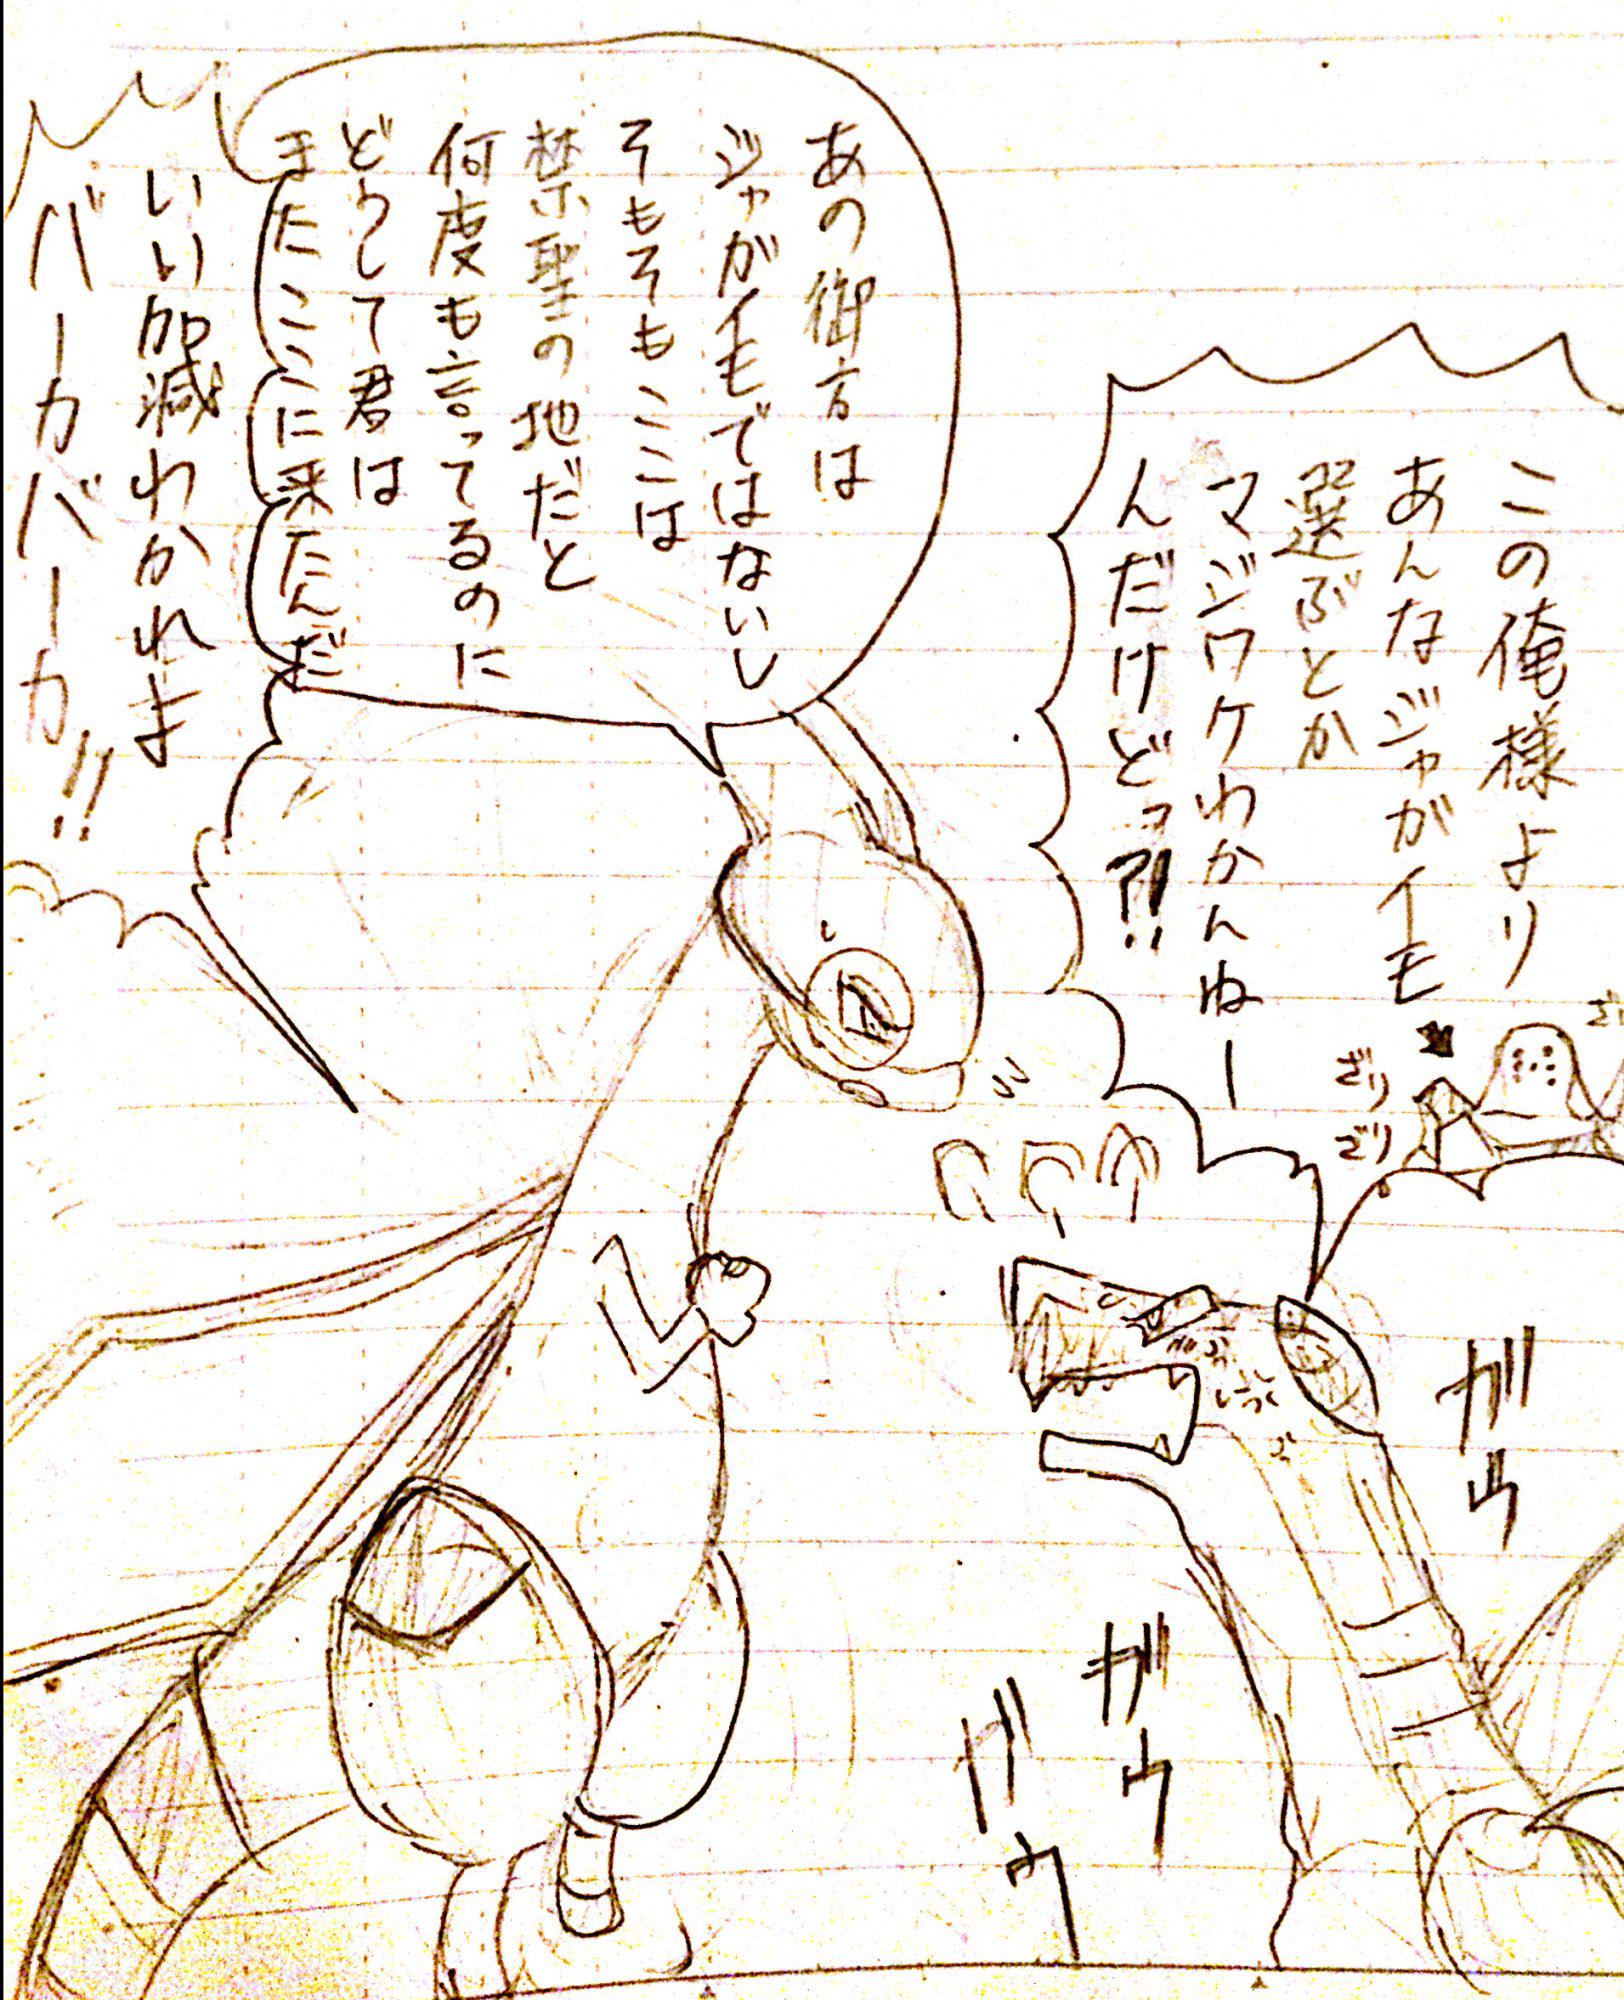 この俺様より
あんなジャガイモ
選ぶとか
マジワケわかんねー
んだけどっ?!!
ざりざり
あの御方は
ジャガイモではないし
そもそもここは
禁聖の地だと
何度も言ってるのに
どうして君は
またここに来たんだ
いい加減わかれま
バーカバーカ!!
ガウ
ガウ
ガウ